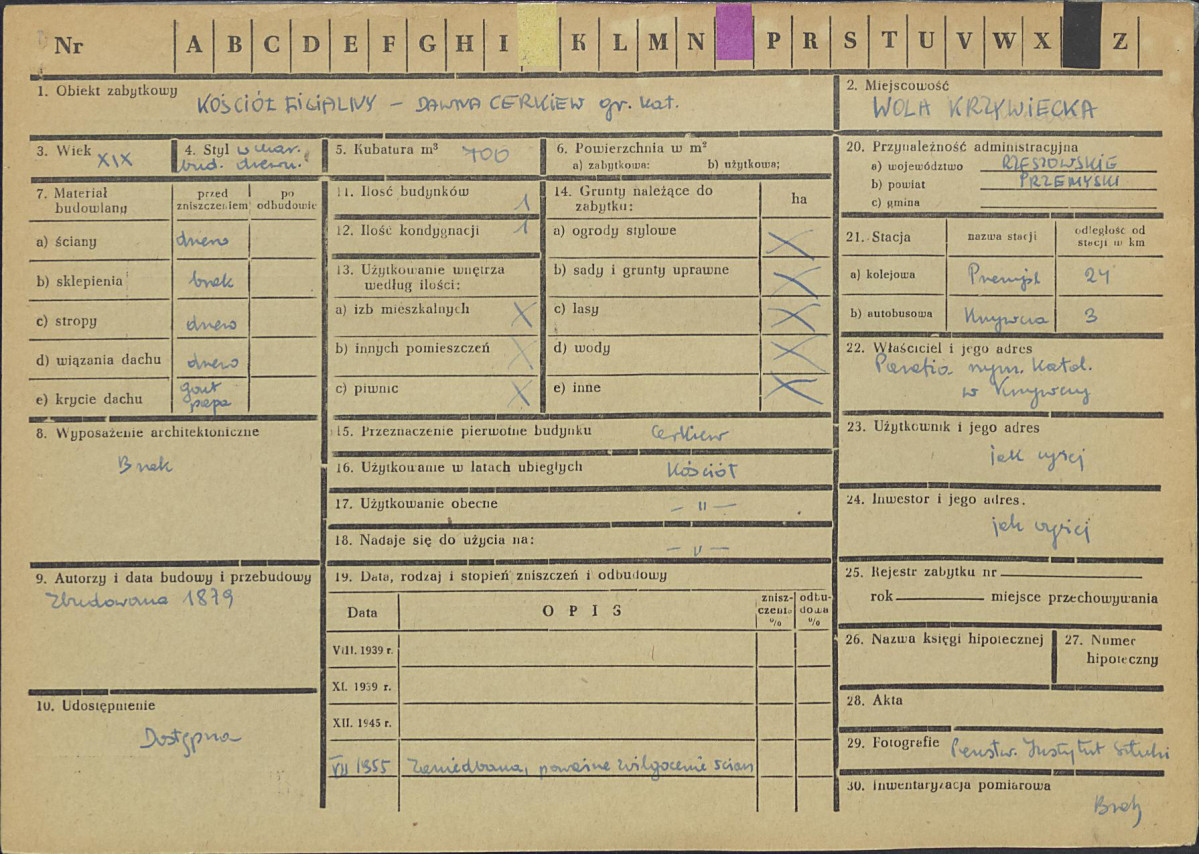 Nr A B C D E F G H I K L M N P R S T U V W X Z
1. Obiekt zabytkowy
KOŚCIÓŁ FILIALNY – DAWNA CERKIEW gr. kat.
2. Miejscowość
WOLA KRZYWIECKA
3. Wiek XIX
4. Styl w char.
bud. drewn.
5. Kubatura m³ 700
6. Powierzchnia w m²
a) zabytkowa: b) użytkowa;
20. Przynależność administracyjna
a) województwo RZESZOWSKIE
b) powiat PRZEMYSKI
c) gmina
7. Materiał budowlany
przed zniszczeniem
po odbudowie
a) ściany drewno
b) sklepienia brak
c) stropy drewno
d) wiązania dachu drewno
e) krycie dachu gont
papa
11. Ilość budynków 1
12. Ilość kondygnacji 1
13. Użytkowanie wnętrza
według ilości:
a) izb mieszkalnych X
b) innych pomieszczeń X
c) piwnic X
14. Grunty należące do
zabytku:
ha
a) ogrody stylowe X
b) sady i grunty uprawne X
c) lasy X
d) wody X
e) inne X
21. Stacja
nazwa stacji
odległość od
stacji w km
a) kolejowa Przemyśl 24
b) autobusowa Krzywcza 3
22. Właściciel i jego adres
Parafia rzym. katol.
w Krzywczy
8. Wyposażenie architektoniczne
Brak
15. Przeznaczenie pierwotne budynku Cerkiew
16. Użytkowanie w latach ubiegłych Kościół
17. Użytkowanie obecne — " —
18. Nadaje się do użycia na: — " —
23. Użytkownik i jego adres
jak wyżej
24. Inwestor i jego adres.
jak wyżej
9. Autorzy i data budowy i przebudowy
Zbudowana 1879
19. Data, rodzaj i stopień zniszczeń i odbudowy
Data
OPIS
znisz-
czenia
%
odbu-
dowa
%
VIII. 1939 r.
XI. 1939 r.
XII. 1945 r.
VII 1955 Zaniedbana, poważne zwilgocenie ścian
25. Rejestr zabytku nr
rok miejsce przechowywania
26. Nazwa księgi hipotecznej
27. Numer
hipoteczny
10. Udostępnienie
Dostępna
28. Akta
29. Fotografie Państw. Instytut Sztuki
30. Inwentaryzacja pomiarowa
Brak